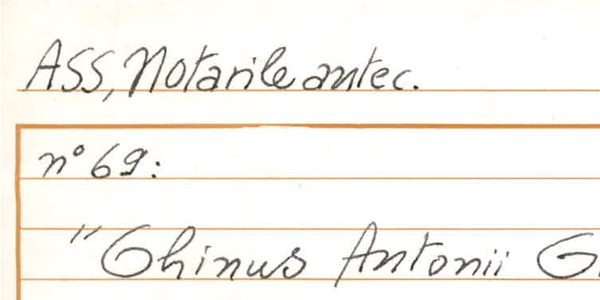 ASS, Notarile antec.
n° 69:
"Ghinus Antonii